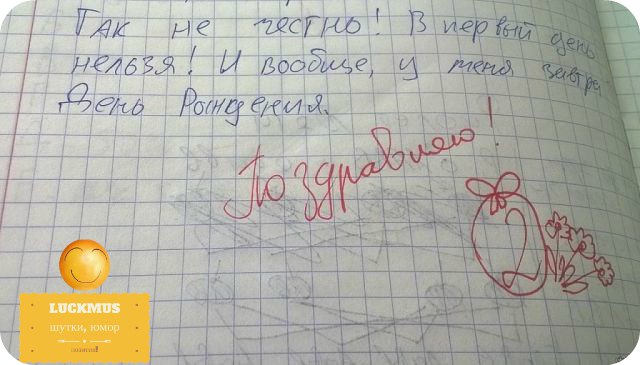 Так не честно! В первый день
нельзя! И вообще, у меня завтра
День Рождения.
Поздравляю!
2
LUCKMUS
шутки, юмор
позитив!